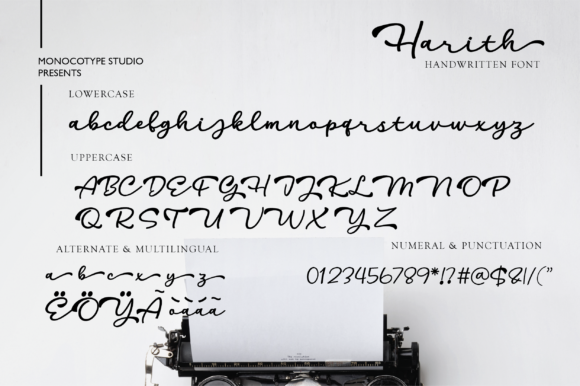 Harith
HANDWRITTEN FONT
MONOCOTYPE STUDIO
PRESENTS
LOWERCASE
abcdefghijklmnopqrstuvwxyz
UPPERCASE
ABCDEFGHIJKLMNOP
QRSTUVWXYZ
ALTERNATE & MULTILINGUAL
a b c x y z
ËÖŸÃ òàáã
NUMERAL & PUNCTUATION
0123456789*!?#@$&|/("